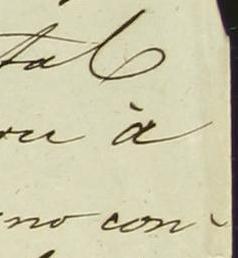 tal
ou à
no con-